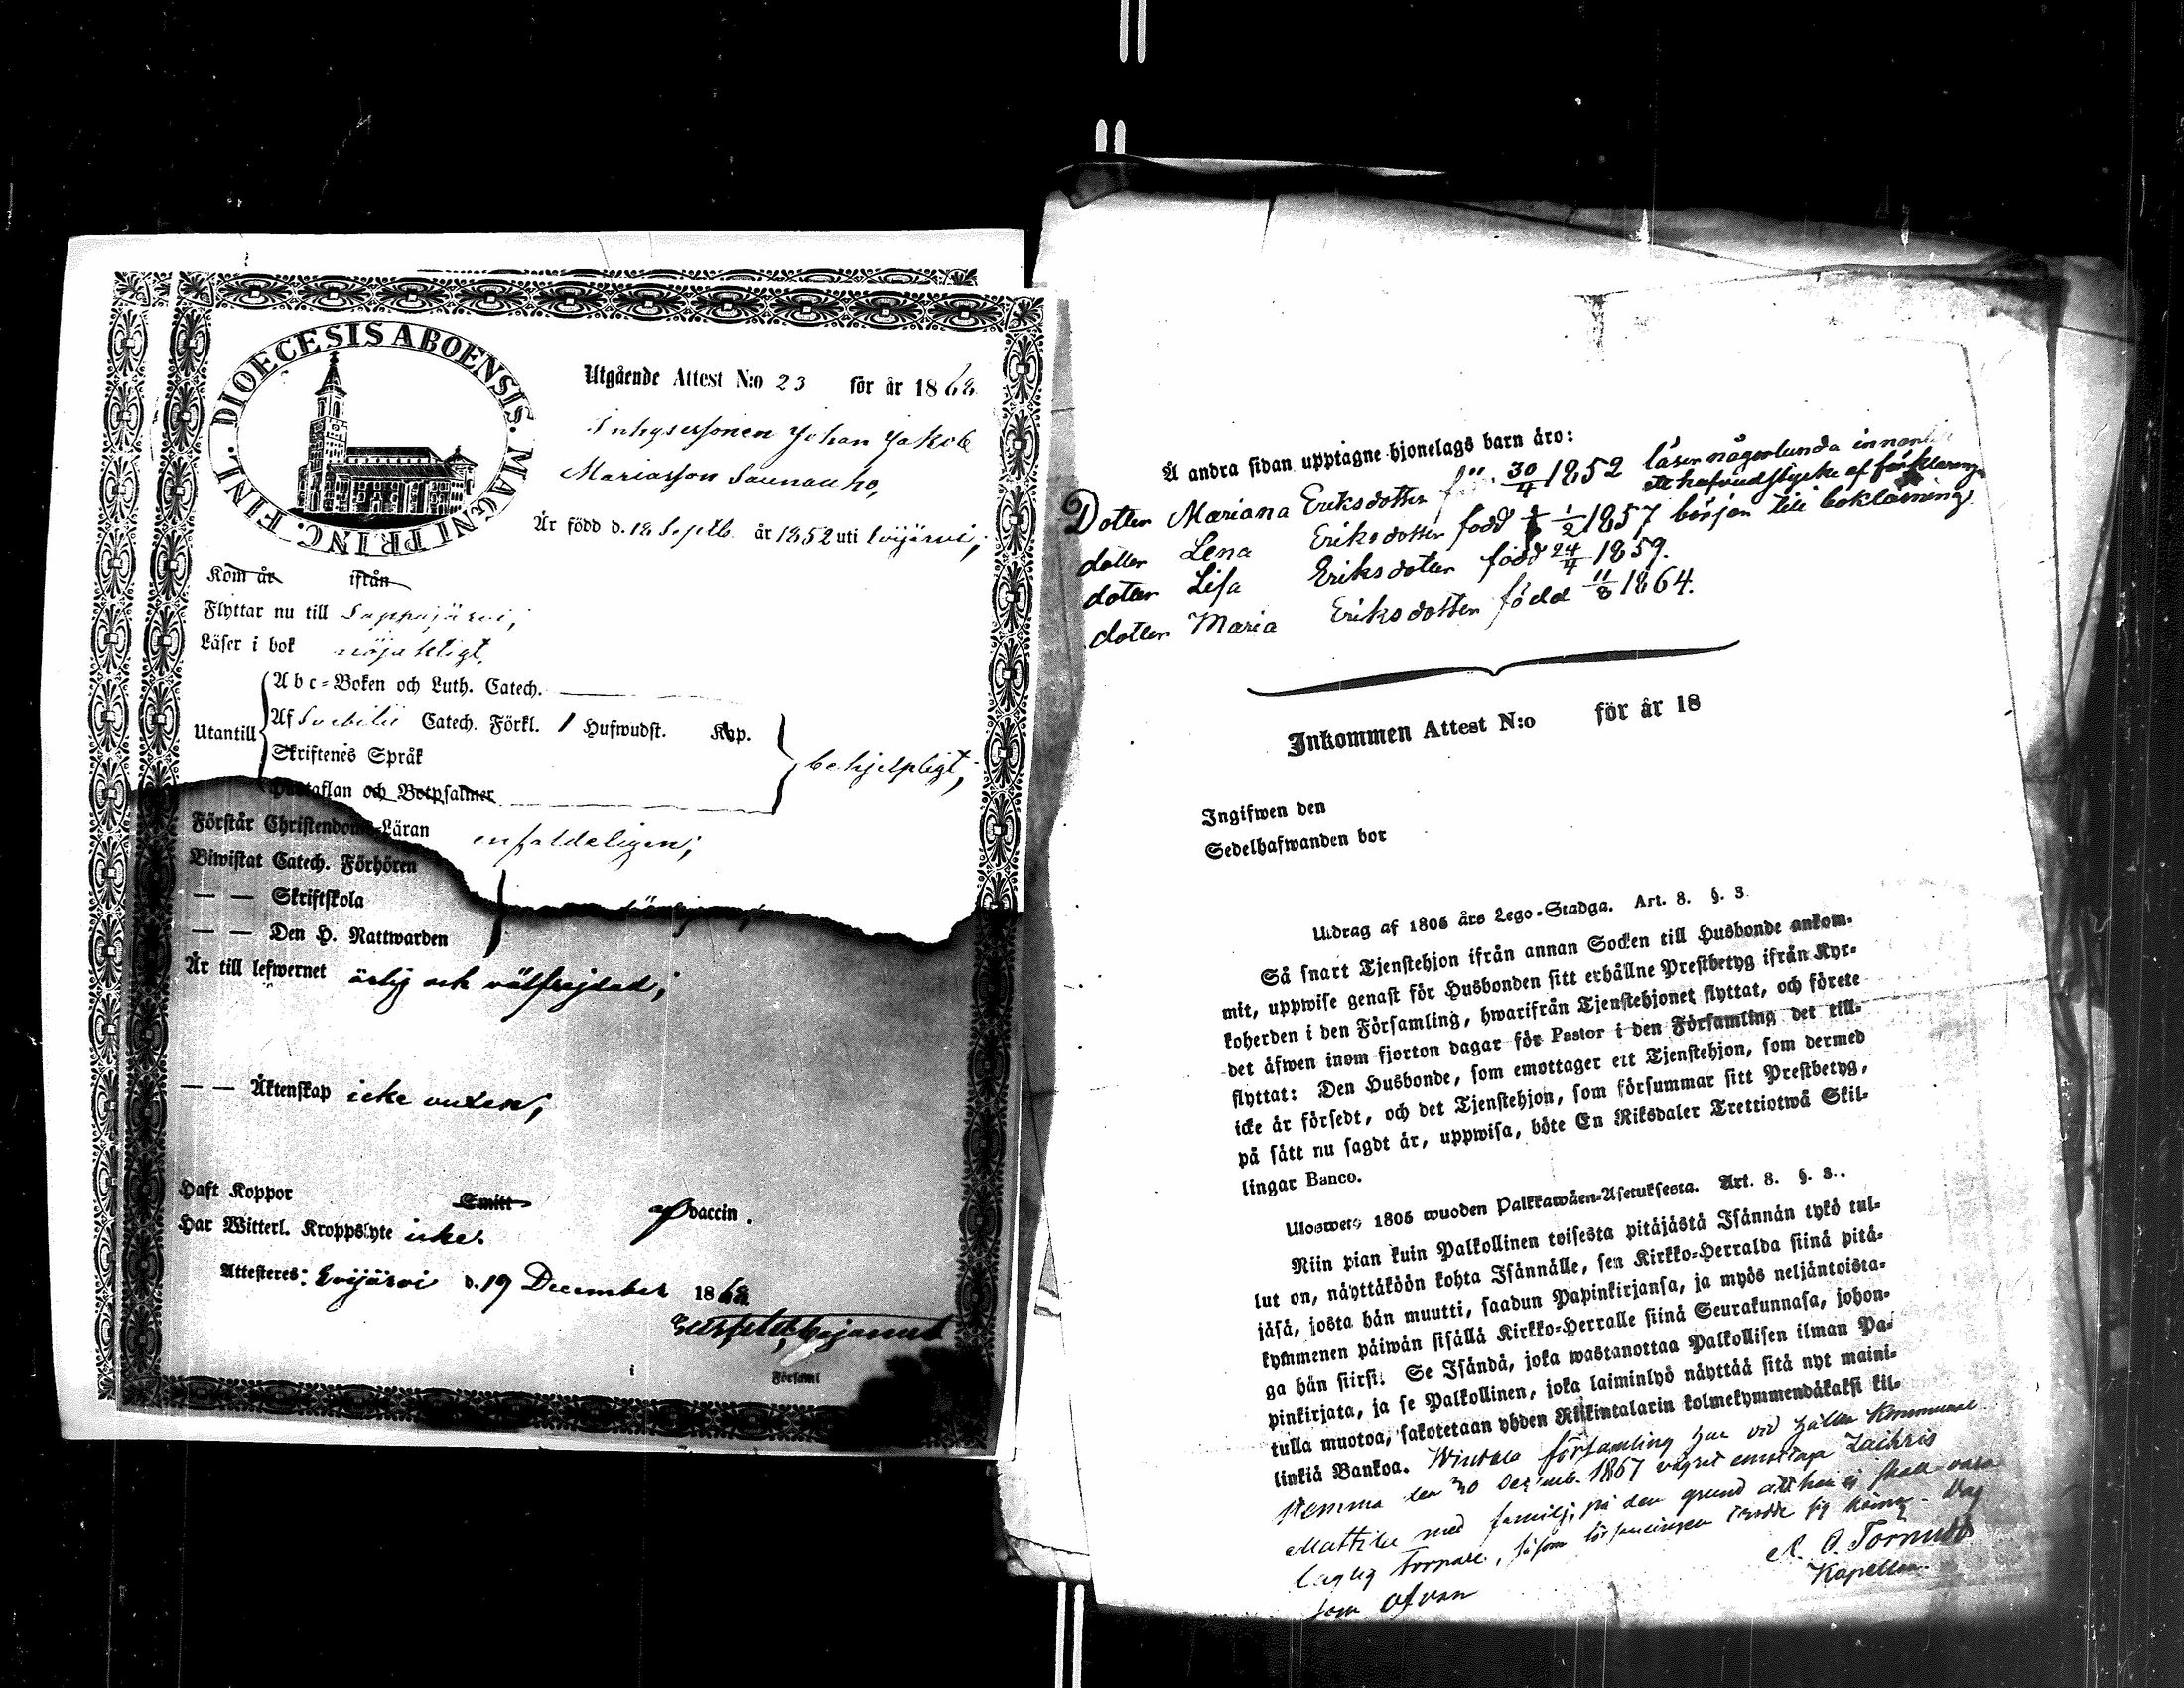 DIOECESIS ABOENSIS. MAGNI PRINC. FINL.
Utgående Attest N:o 23 för år 1868
Inhysessonen Johan Jakob
Mariasson Saunaaho,
Är född d. 18 Septb. år 1852 uti Evijärvi,
Kom år ifrån
Flyttar nu till Lappajärvi,
Läser i bok nöjaktligt,
Utantill
Abc-Boken och Luth. Catech.
Af Svebilii Catech. Förkl. 1 Hufwudst. Kap.
Skriftenes Språk
behjelpligt,
Hustaflan och Botpsalmer
Förstår Christendoms-Läran enfaldeligen,
Biwistat Catech. Förhören
— — Skriftskola
— — Den H. Nattwarden
Är till lefwernet ärlig och välfrejdad,
— — Äktenskap icke vuxen,
Haft Koppor Smitt Vaccin.
Har Witterl. Kroppslyte icke.
Attesteres: Evijärvi d. 19 December 1868
Församl
Å andra sidan upptagne hjonelags barn äro:
Dotter Mariana Eriksdotter född 30/4 1852 läser någorlunda innantill
hufvudstycke af förklaring
dotter Lena Eriksdotter född 1/2 1857 börjar till bokläsning
dotter Lisa Eriksdotter född 24/4 1859.
dotter Maria Eriksdotter född 11/8 1864.
Inkommen Attest N:o för år 18
Ingifwen den
Sedelhafwanden bor
Utdrag af 1805 års Lego-Stadga. Art. 8. §. 3.
Så snart Tjenstehjon ifrån annan Socken till Husbonde ankom-
mit, uppwise genast för Husbonden sitt erhållne Prestbetyg ifrån Kyr-
koherden i den Församling, hwarifrån Tjenstehjonet flyttat, och förete
det äfwen inom fjorton dagar för Pastor i den Församling det till-
flyttat: Den Husbonde, som emottager ett Tjenstehjon, som dermed
icke är försedt, och det Tjenstehjon, som försummar sitt Prestbetyg,
på sätt nu sagdt är, uppwisa, böte En Riksdaler Trettiotwå Skil-
lingar Banco.
Ulosweto 1805 wuoden Palkkawäen-Asetuksesta. Art. 8. §. 3.
Niin pian kuin Palkollinen toisesta pitäjästä Isännän tykö tul-
lut on, näyttäköön kohta Isännälle, sen Kirkko-Herralda siinä pitä-
jäsä, josta hän muutti, saadun Papinkirjansa, ja myös neljäntoista-
kymmenen päiwän sisällä Kirkko-Herralle siinä Seurakunnasa, johon-
ga hän siirsi. Se Isändä, joka wastanottaa Palkollisen ilman Pa-
pinkirjata, ja se Palkollinen, joka laiminlyö näyttää sitä nyt maini-
tulla muotoa, sakotetaan yhden Riikintalarin kolmekymmendäkaksi kil-
linkiä Bankoa. Windala församling har vid hållen Kommunal
stemma den 30 Decemb. 1867 vägrat emottaga Zachris
Mattila med familj, på den grund att han ej skall vara
laglig torpare, såsom församlingen trodde sig känna. Dag
som ofvan
A. O. Törnudd
Kapellan.